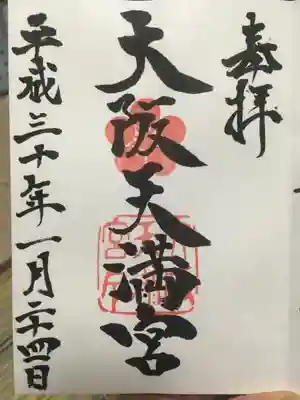 奉拝
天阪天満宮
平成三十年一月二十四日